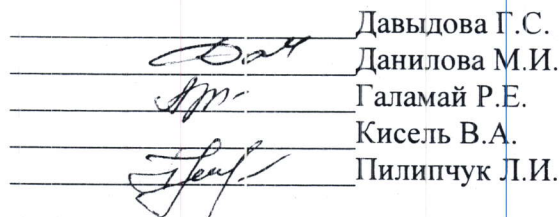 Давыдова Г.С.
Данилова М.И.
Галамай Р.Е.
Кисель В.А.
Пилипчук Л.И.